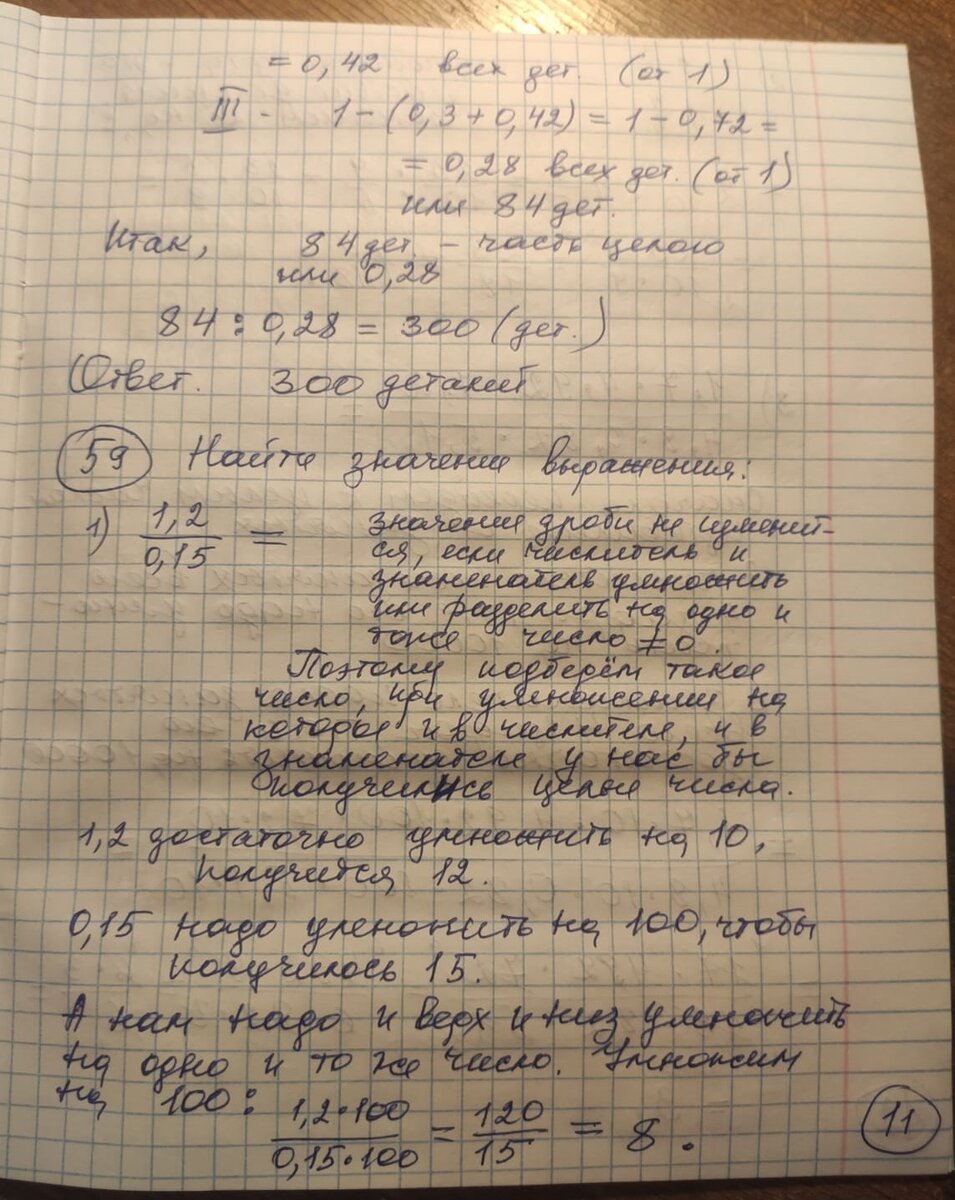 = 0,42 всех дет. (от 1)
III - 1 - (0,3 + 0,42) = 1 - 0,72 =
= 0,28 всех дет. (от 1)
или 84 дет.
Итак, 84 дет. - часть целого
или 0,28
84 : 0,28 = 300 (дет.)
Ответ. 300 деталей
59 Найти значение выражения:
1) 1,2/0,15 =
значение дроби не изменит-
ся, если числитель и
знаменатель умножить
или разделить на одно и
тоже число ≠ 0.
Поэтому подберём такое
число, при умножении на
которое и в числителе, и в
знаменателе у нас бы
получились целые числа.
1,2 достаточно умножить на 10,
получится 12.
0,15 надо умножить на 100, чтобы
получилось 15.
А нам надо и верх и низ умножить
на одно и то же число. Умножим
на 100:
1,2·100/0,15·100 = 120/15 = 8.
11